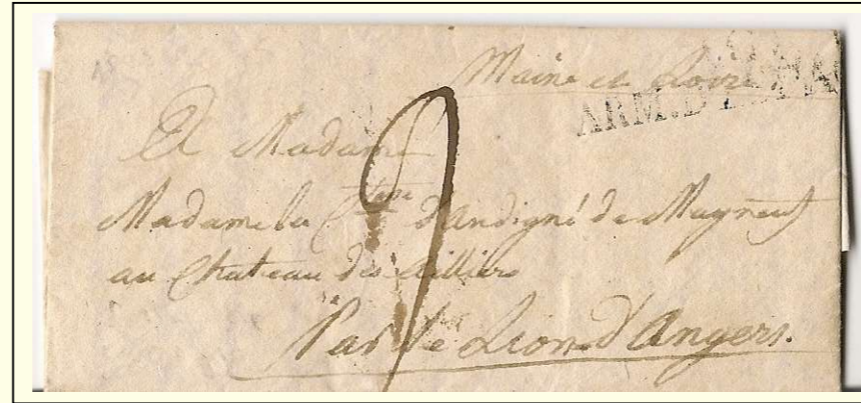 Maine et Loire
ARM. D'ESPAG
A Madame
Madame la Ctesse d'Andigné de Mayneuf
au Chateau des
Par le Lion d'Angers.
9